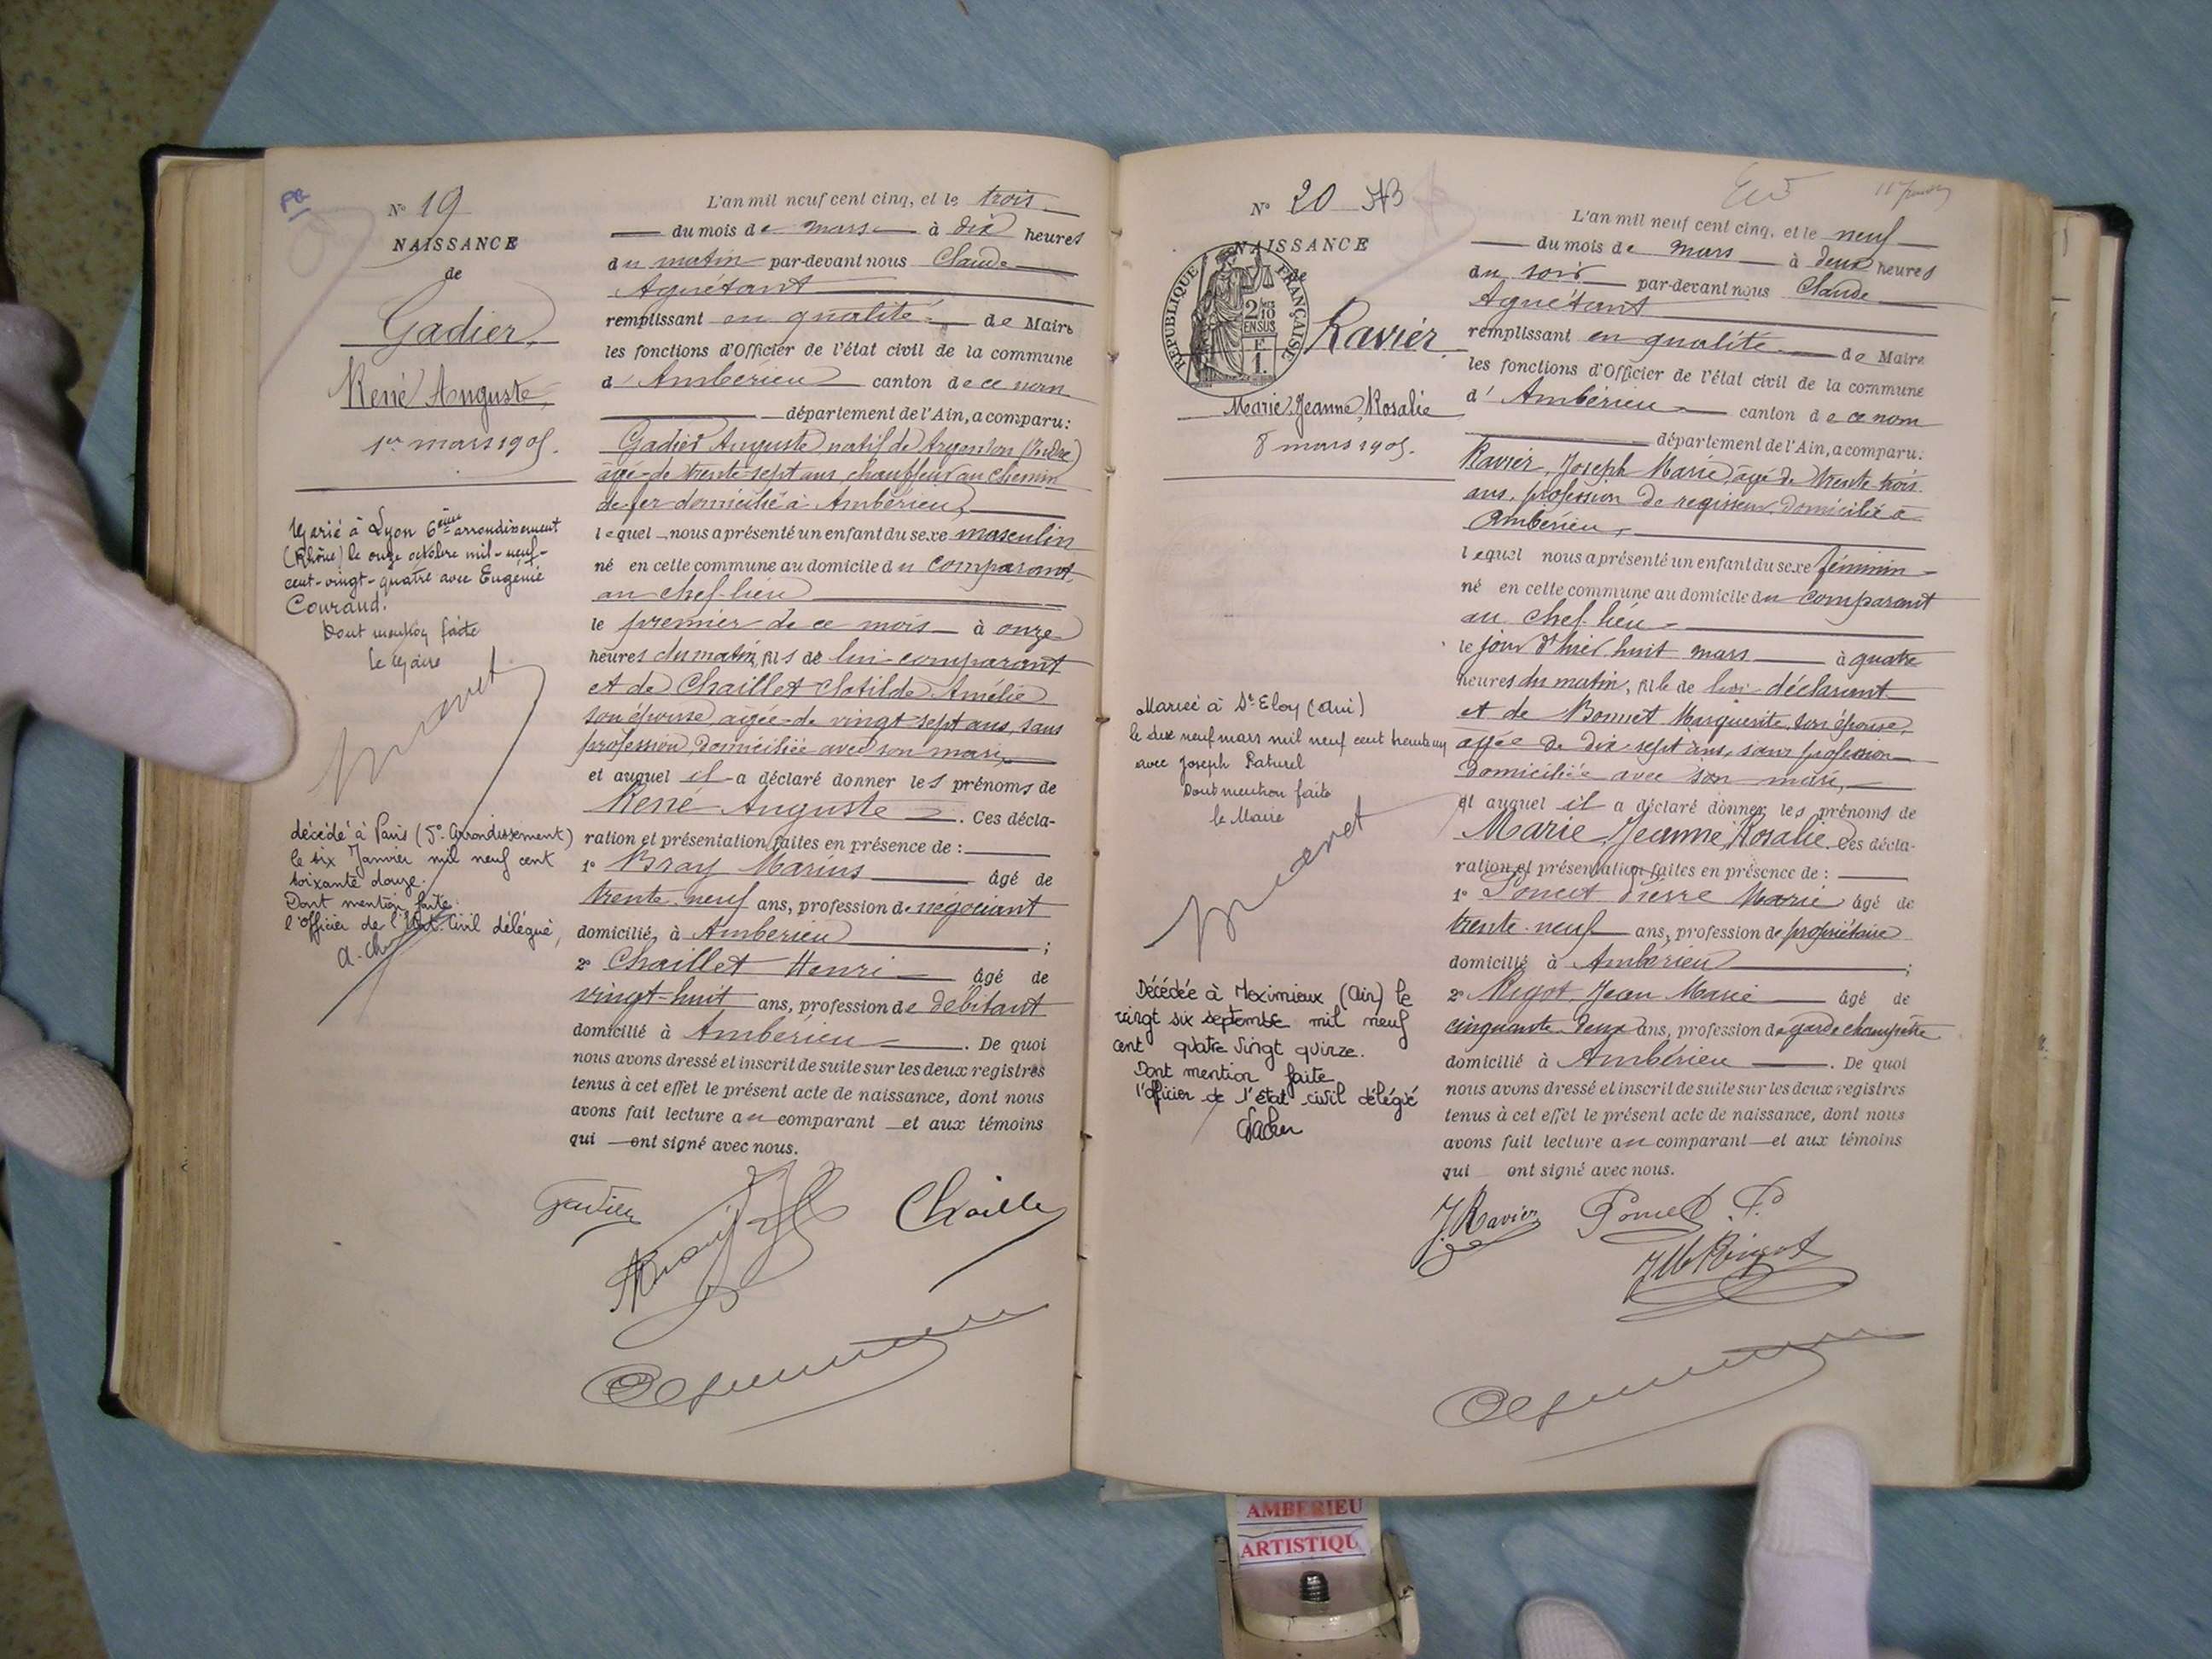 Nº 19
NAISSANCE
de
Gadier,
René Auguste,
1er mars 1905.
Marié à Lyon 6ème arrondissement
(Rhône) le onze octobre mil-neuf-
cent-vingt-quatre avec Eugénie
Couraud.
Dont mention faite
Le Maire
décédé à Paris (5e Arrondissement)
le six Janvier mil neuf cent
soixante douze.
Dont mention faite.
l'officier de l'Etat-Civil délégué,
L'an mil neuf cent cinq, et le trois
du mois de mars à dix heures
du matin par-devant nous Claude
Aguétant
remplissant en qualité de Maire
les fonctions d'Officier de l'état civil de la commune
d' Ambérieu canton de ce nom
département de l'Ain, a comparu:
Gadier Auguste natif de Argenton (Indre)
âgé de trente-sept ans, chauffeur au chemin
de fer domicilié à Ambérieu,
lequel nous a présenté un enfant du sexe masculin
né en cette commune au domicile du comparant
au chef-lieu
le premier de ce mois à onze
heures du matin, fils de lui comparant
et de Chaillet Clotilde Amélie
son épouse, âgée de vingt-sept ans, sans
profession, domiciliée avec son mari,
et auquel il a déclaré donner les prénoms de
René Auguste . Ces décla-
ration et présentation faites en présence de :
1º Bray Marius âgé de
trente-neuf ans, profession de négociant
domicilié, à Ambérieu ;
2º Chaillet Henri âgé de
vingt-huit ans, profession de débitant
domicilié à Ambérieu . De quoi
nous avons dressé et inscrit de suite sur les deux registres
tenus à cet effet le présent acte de naissance, dont nous
avons fait lecture au comparant et aux témoins
qui ont signé avec nous.
Gadier
Chaillet
Nº 20
NAISSANCE
de
RÉPUBLIQUE FRANÇAISE
2/10 EN SUS
F. 1.
Ravier
Marie, Jeanne, Rosalie
8 mars 1905.
Mariée à St Eloy (Ain)
le dix neuf mars mil neuf cent trente un
avec Joseph Paturel
Dont mention faite
le Maire
Décédée à Meximieux (Ain) le
vingt six septembre mil neuf
cent quatre vingt quinze.
Dont mention faite
l'officier de l'état civil délégué
L'an mil neuf cent cinq, et le neuf
du mois de mars à deux heures
du soir par-devant nous Claude
Aguétant
remplissant en qualité de Maire
les fonctions d'Officier de l'état civil de la commune
d' Ambérieu canton de ce nom
département de l'Ain, a comparu:
Ravier, Joseph Marie, âgé de trente-trois
ans, profession de régisseur, domicilié à
Ambérieu,
lequel nous a présenté un enfant du sexe féminin
né en cette commune au domicile du comparant
au chef-lieu
le jour d'hier huit mars à quatre
heures du matin, fille de lui déclarant
et de Bonnet Marguerite, son épouse,
âgée de dix-sept ans, sans profession
domiciliée avec son mari,
et auquel il a déclaré donner les prénoms de
Marie, Jeanne, Rosalie. Ces décla-
ration et présentation faites en présence de :
1º Poncet Pierre Marie âgé de
trente-neuf ans, profession de propriétaire
domicilié à Ambérieu ;
2º Jean Marie âgé de
cinquante-deux ans, profession de garde champêtre
domicilié à Ambérieu . De quoi
nous avons dressé et inscrit de suite sur les deux registres
tenus à cet effet le présent acte de naissance, dont nous
avons fait lecture au comparant et aux témoins
qui ont signé avec nous.
J Ravier
AMBERIEU
ARTISTIQU